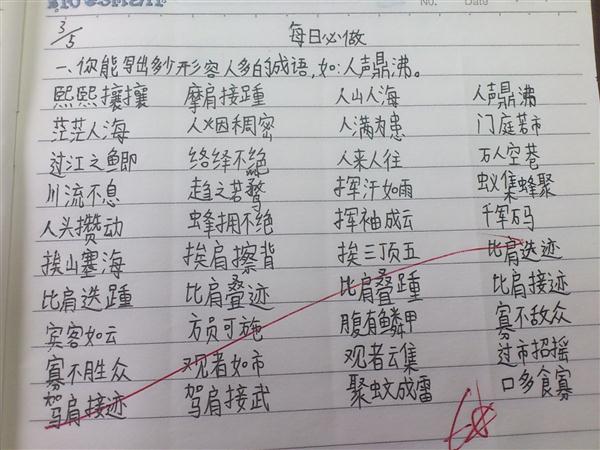 No. Date
3/5
每日必做
一、你能写出多少形容人多的成语,如:人声鼎沸。
熙熙攘攘 摩肩接踵 人山人海 人声鼎沸
茫茫人海 人烟稠密 人满为患 门庭若市
过江之鲫 络绎不绝 人来人往 万人空巷
川流不息 趋之若鹜 挥汗如雨 蚁集蜂聚
人头攒动 蜂拥不绝 挥袖成云 千军万码
挨山塞海 挨肩擦背 挨三顶五 比肩迭迹
比肩迭踵 比肩叠迹 比肩叠踵 比肩接迹
宾客如云 方员可施 腹有鳞甲 寡不敌众
寡不胜众 观者如市 观者云集 过市招摇
驾肩接迹 驾肩接武 聚蚊成雷 口多食寡